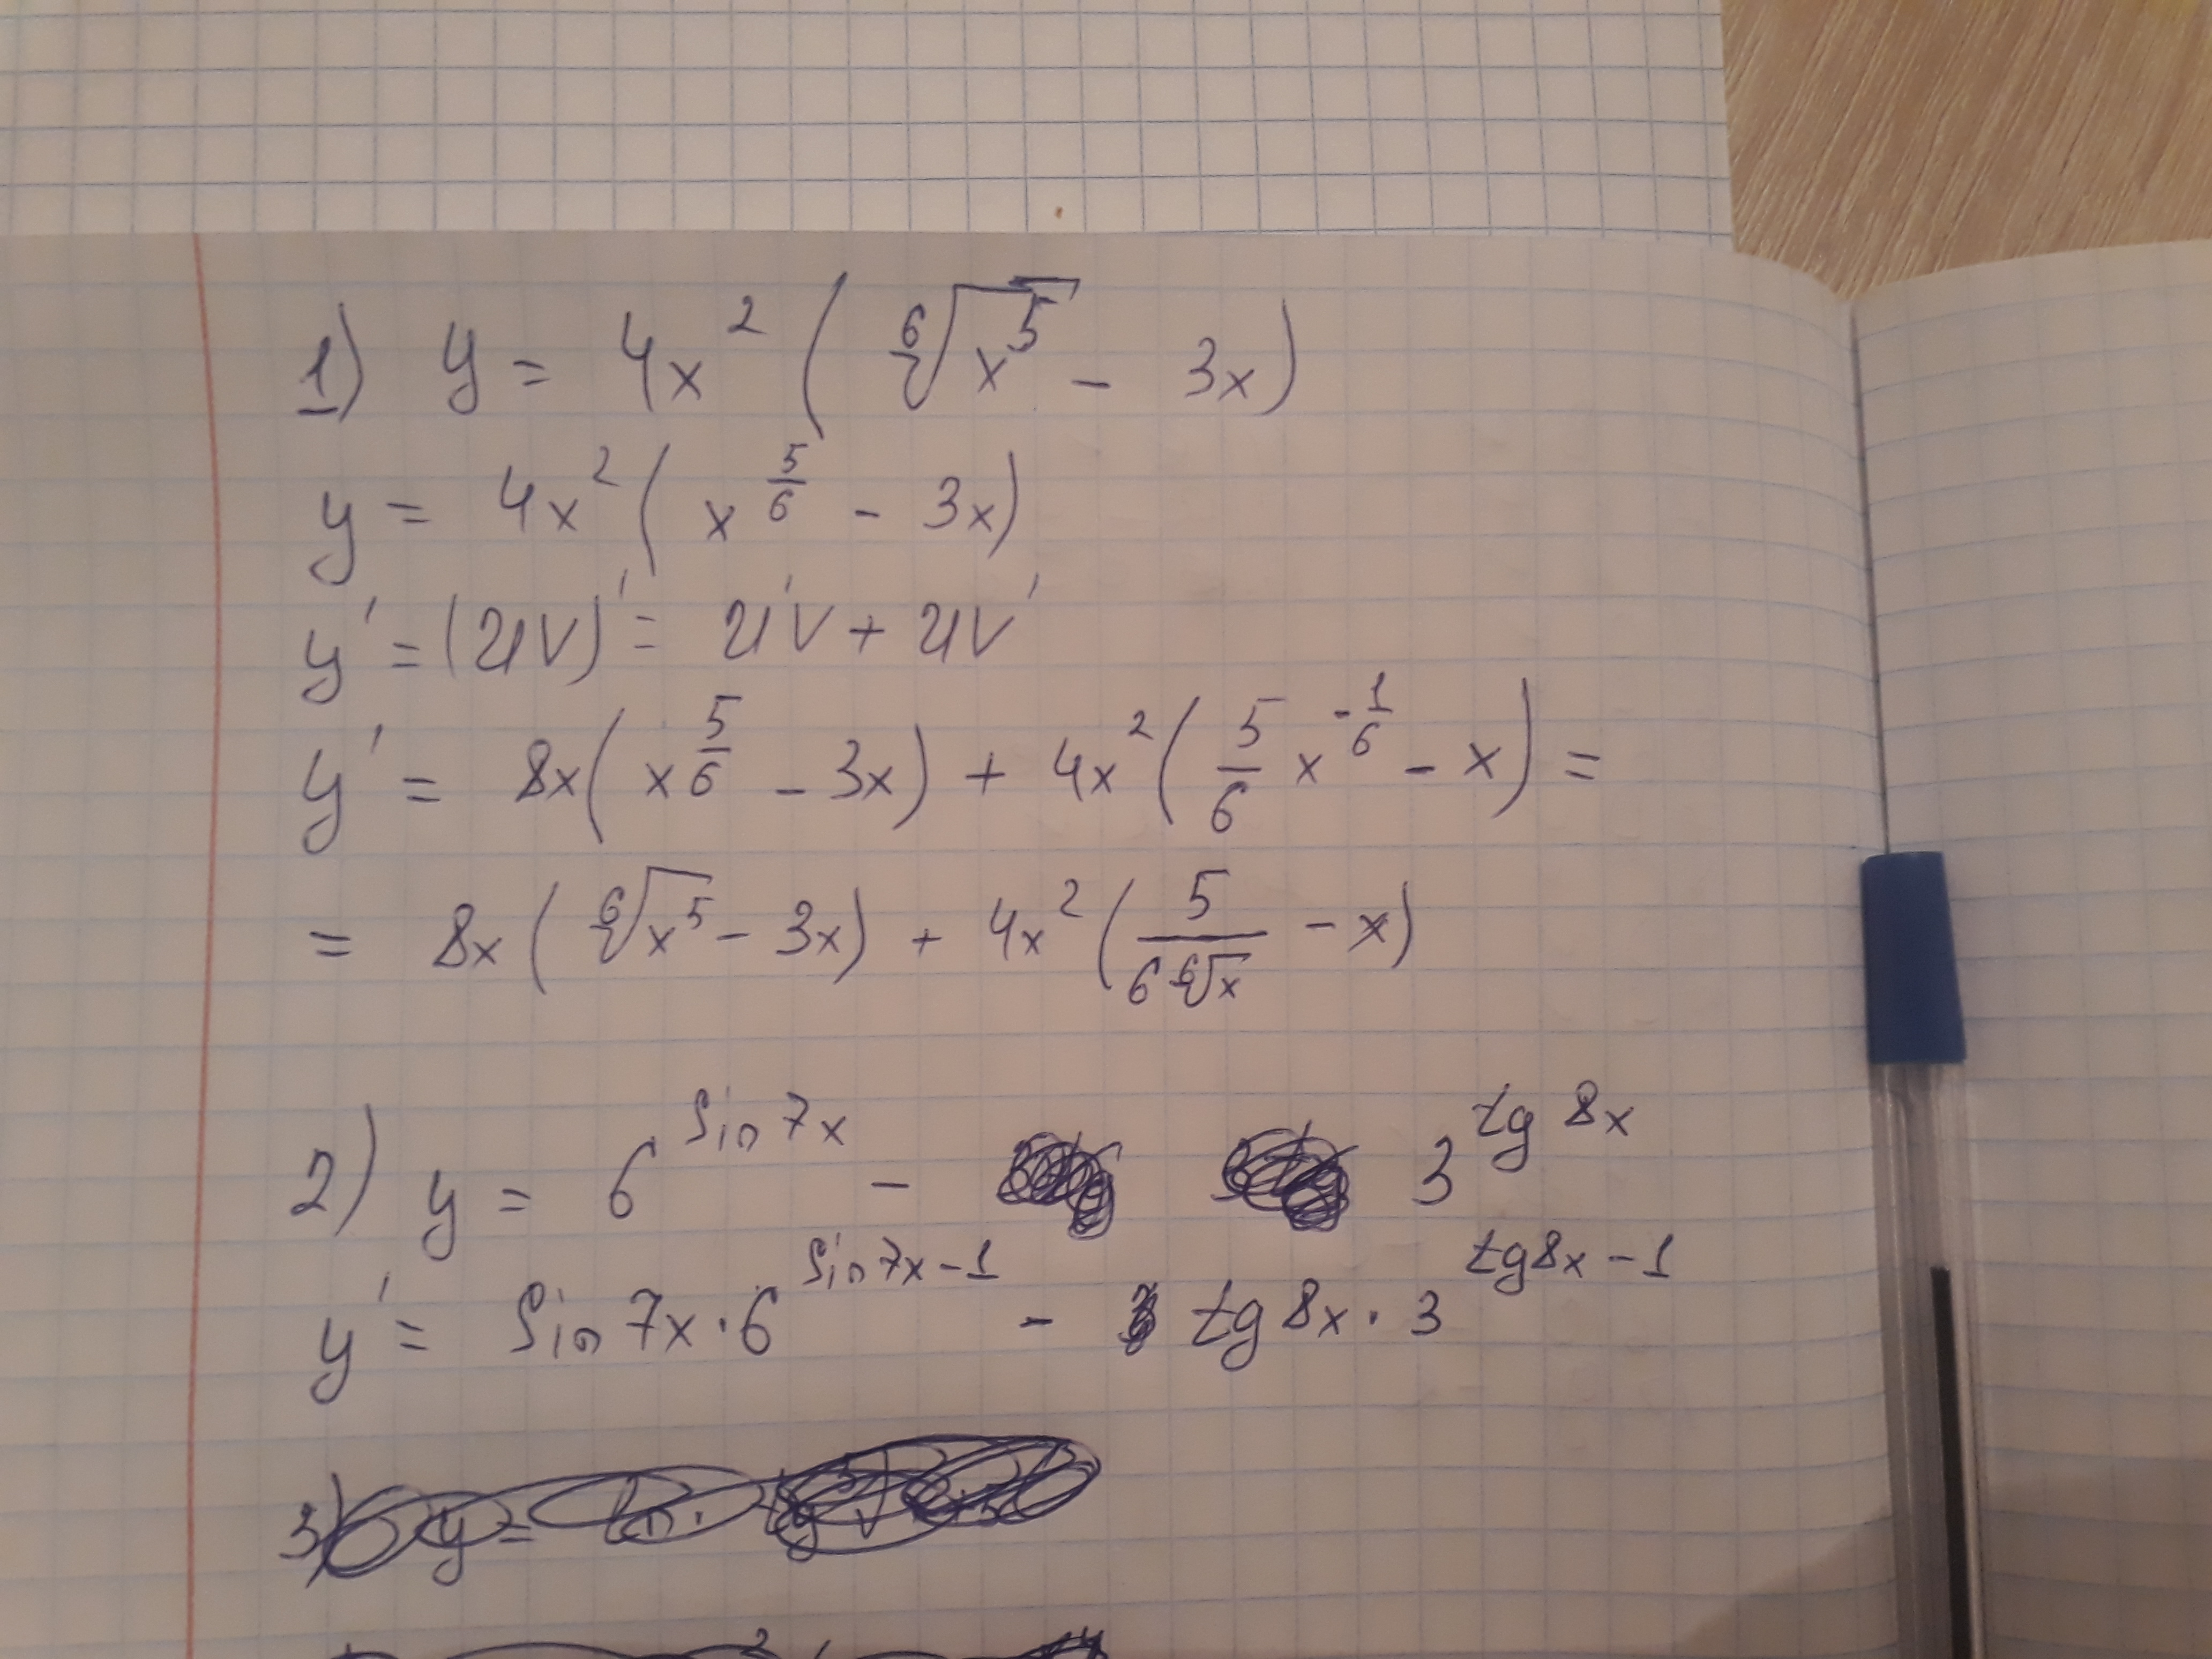 1) y = 4x² (⁶√x⁵ - 3x)
y = 4x² (x^(5/6) - 3x)
y' = (uv)' = u'v + uv'
y' = 8x(x^(5/6) - 3x) + 4x² (5/6 x^(-1/6) - x) =
= 8x (⁶√x⁵ - 3x) + 4x² (5/(6 ⁶√x) - x)
2) y = 6^(sin 7x) - 3^(tg 8x)
y' = sin 7x · 6^(sin 7x - 1) - tg 8x · 3^(tg 8x - 1)
3) y =